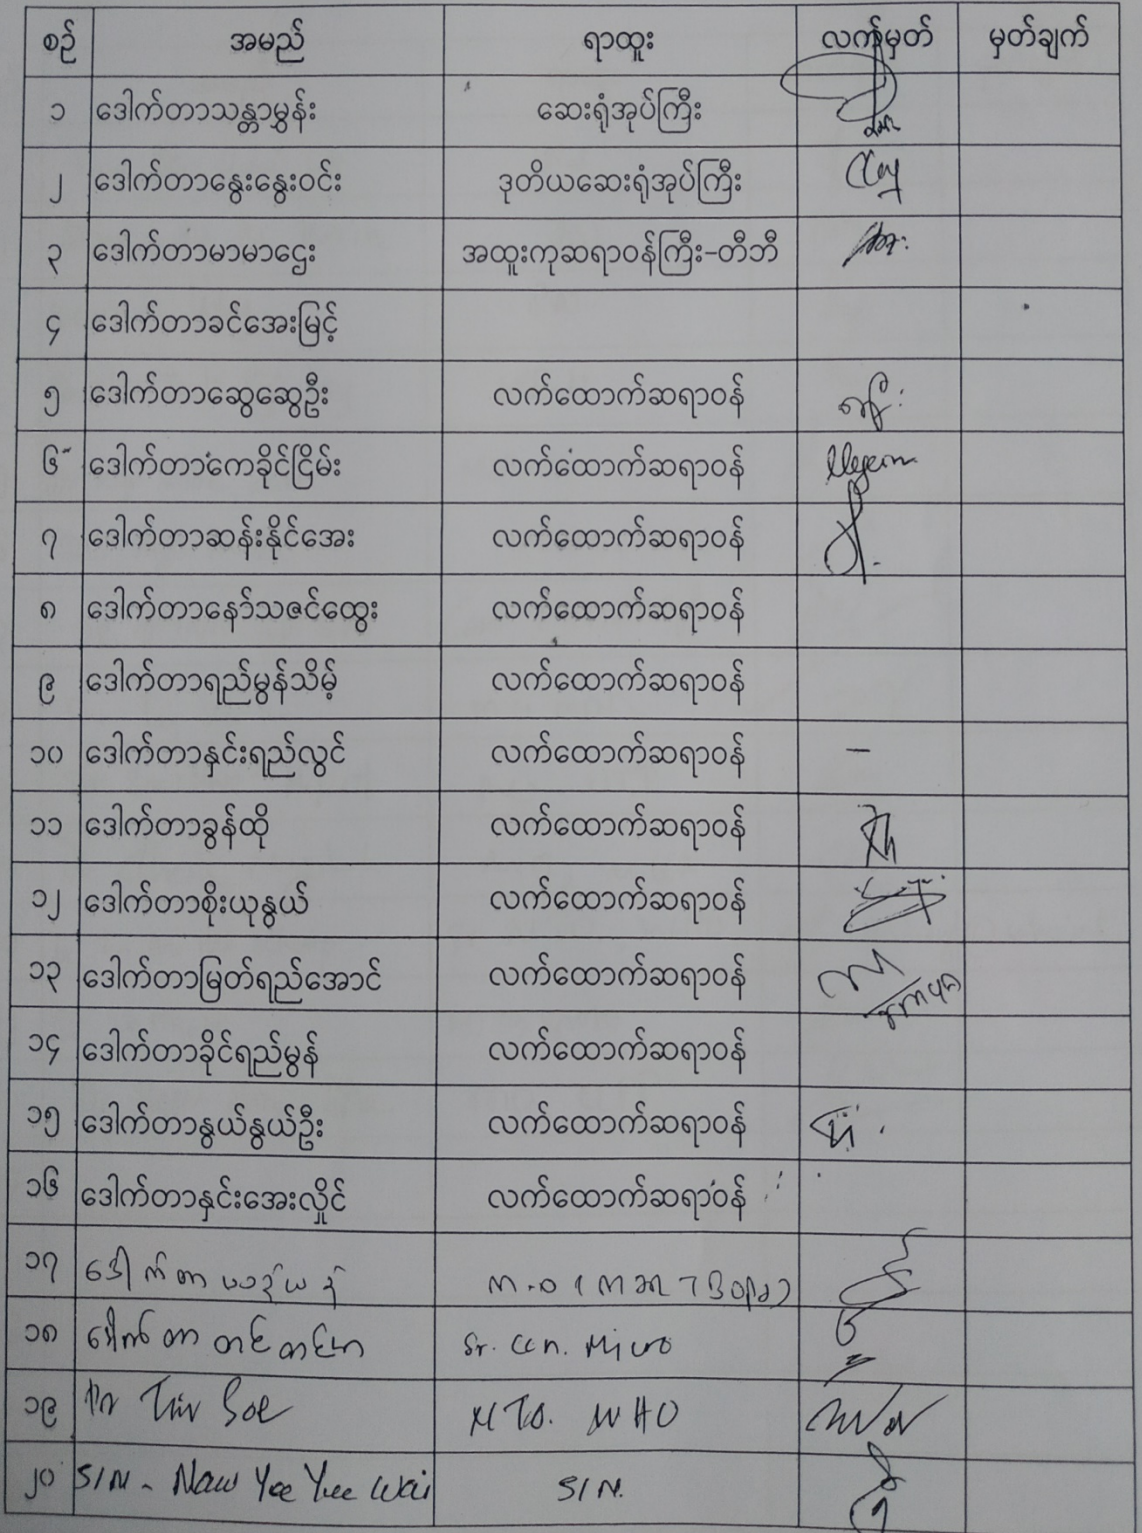 စဉ် အမည် ရာထူး လက်မှတ် မှတ်ချက်
၁ ဒေါက်တာသန္တာမွှန်း ဆေးရုံအုပ်ကြီး
၂ ဒေါက်တာနွေးနွေးဝင်း ဒုတိယဆေးရုံအုပ်ကြီး
၃ ဒေါက်တာမာမာဌေး အထူးကုဆရာဝန်ကြီး-တီဘီ
၄ ဒေါက်တာခင်အေးမြင့်
၅ ဒေါက်တာဆွေဆွေဦး လက်ထောက်ဆရာဝန်
၆ ဒေါက်တာကေခိုင်ငြိမ်း လက်ထောက်ဆရာဝန်
၇ ဒေါက်တာဆန်းနိုင်အေး လက်ထောက်ဆရာဝန်
၈ ဒေါက်တာနော်သဇင်ထွေး လက်ထောက်ဆရာဝန်
၉ ဒေါက်တာရည်မွန်သိမ့် လက်ထောက်ဆရာဝန်
၁၀ ဒေါက်တာနှင်းရည်လွင် လက်ထောက်ဆရာဝန် –
၁၁ ဒေါက်တာခွန်ထို လက်ထောက်ဆရာဝန်
၁၂ ဒေါက်တာစိုးယုနွယ် လက်ထောက်ဆရာဝန်
၁၃ ဒေါက်တာမြတ်ရည်အောင် လက်ထောက်ဆရာဝန်
၁၄ ဒေါက်တာခိုင်ရည်မွန် လက်ထောက်ဆရာဝန်
၁၅ ဒေါက်တာနွယ်နွယ်ဦး လက်ထောက်ဆရာဝန်
၁၆ ဒေါက်တာနှင်းအေးလှိုင် လက်ထောက်ဆရာဝန်
၁၇ ဒေါက်တာ
၁၈ ဒေါက်တာ တင်တင်မာ Sr. Con. Micro
၁၉ Dr Tin Soe MTO. WHO
၂၀ S/N - Naw Yee Yee Wai S/N.